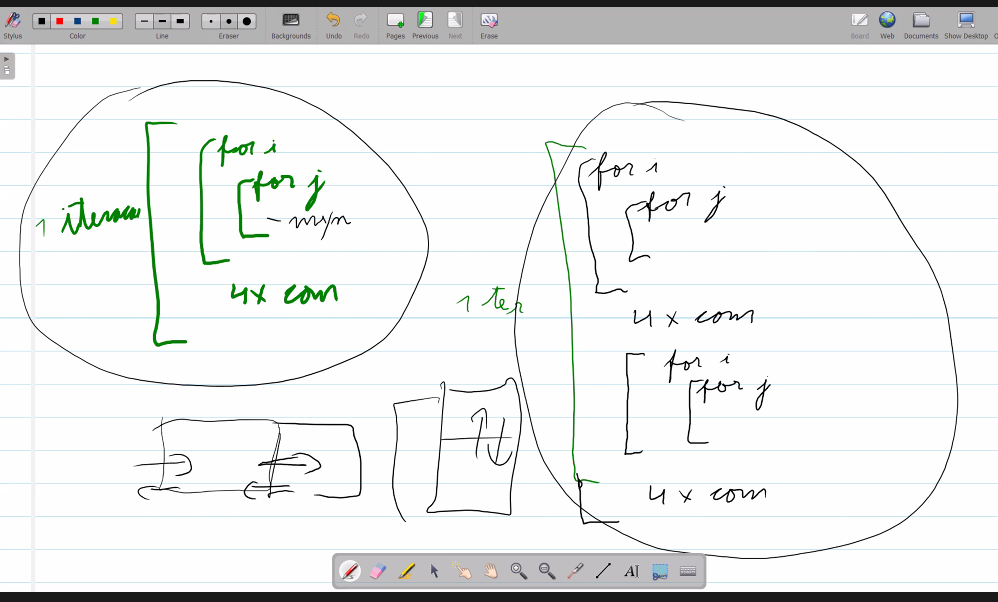 Stylus
Color
Line
Eraser
Backgrounds
Undo
Redo
Pages
Previous
Next
Erase
Board
Web
Documents
Show Desktop
for i
for j
4x com
for i
for j
4 x com
for i
for j
4 x com
AI